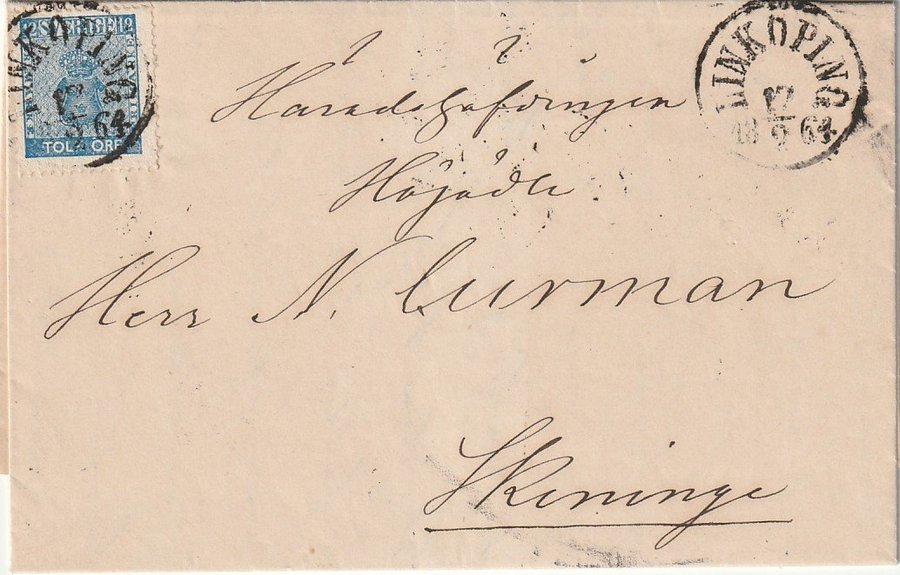 12 SVERIGE 12
TOLF ÖRE
LINKÖPING
17
9 64
LINKÖPING
17
18 9 64
Häradshöfdingen
Höjädle
Herr N. Curman
Skeninge